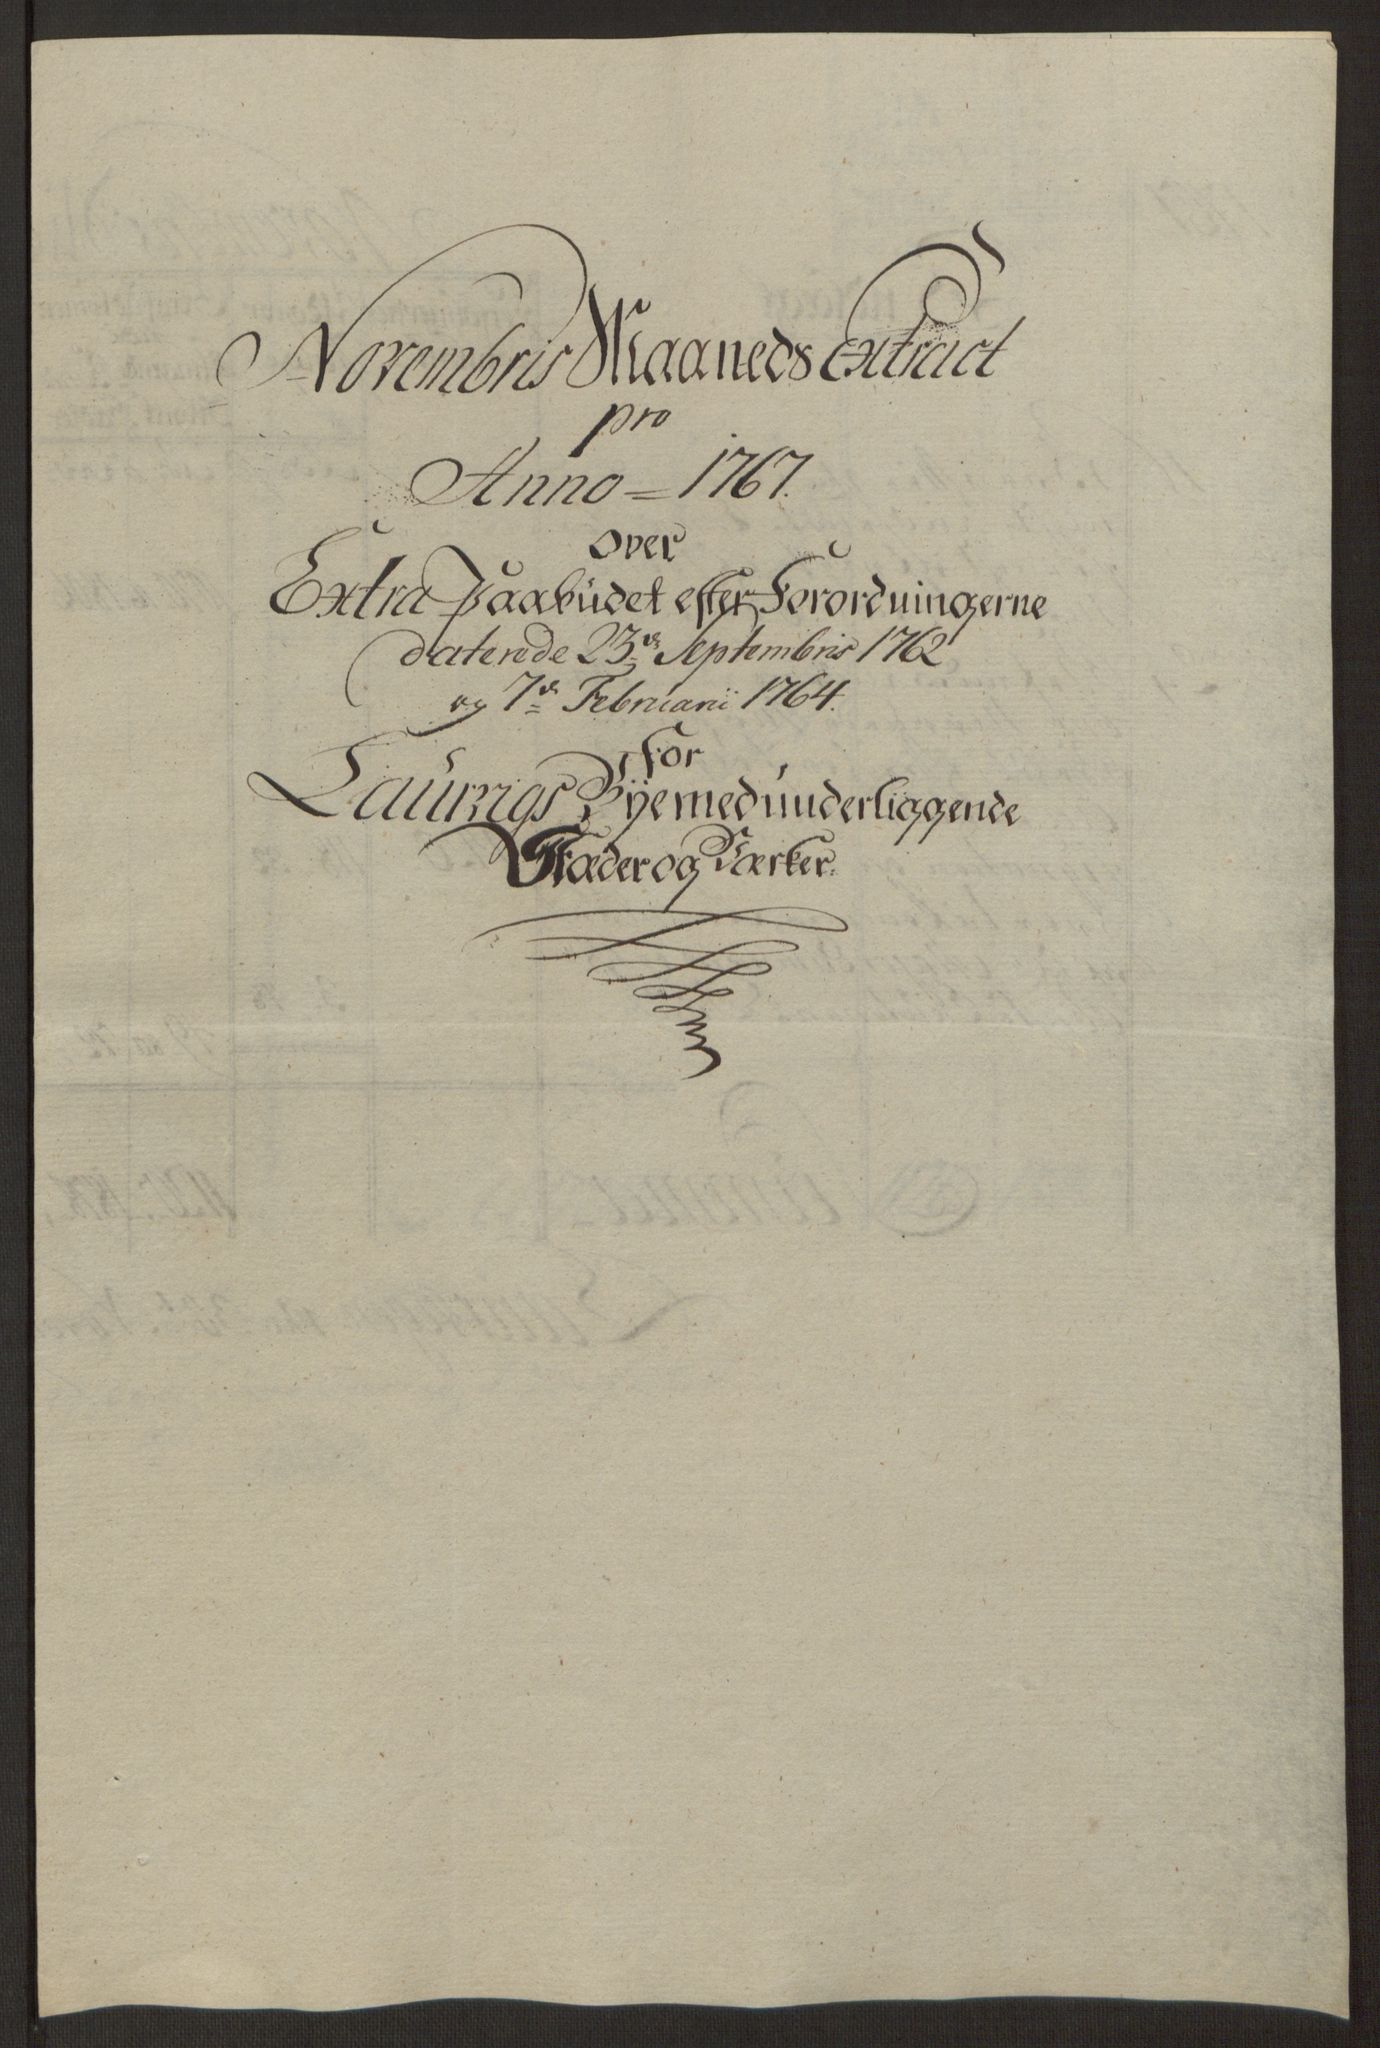 Novembris Maaneds Extract
pro
Anno = 1767.
over
Extra Paabüdet efter Forordningerne
daterede 23de Septembris 1762
og 7de Februarii 1764.
for
Laürvigs Bÿe med ünderliggende
Stæder og Værker.